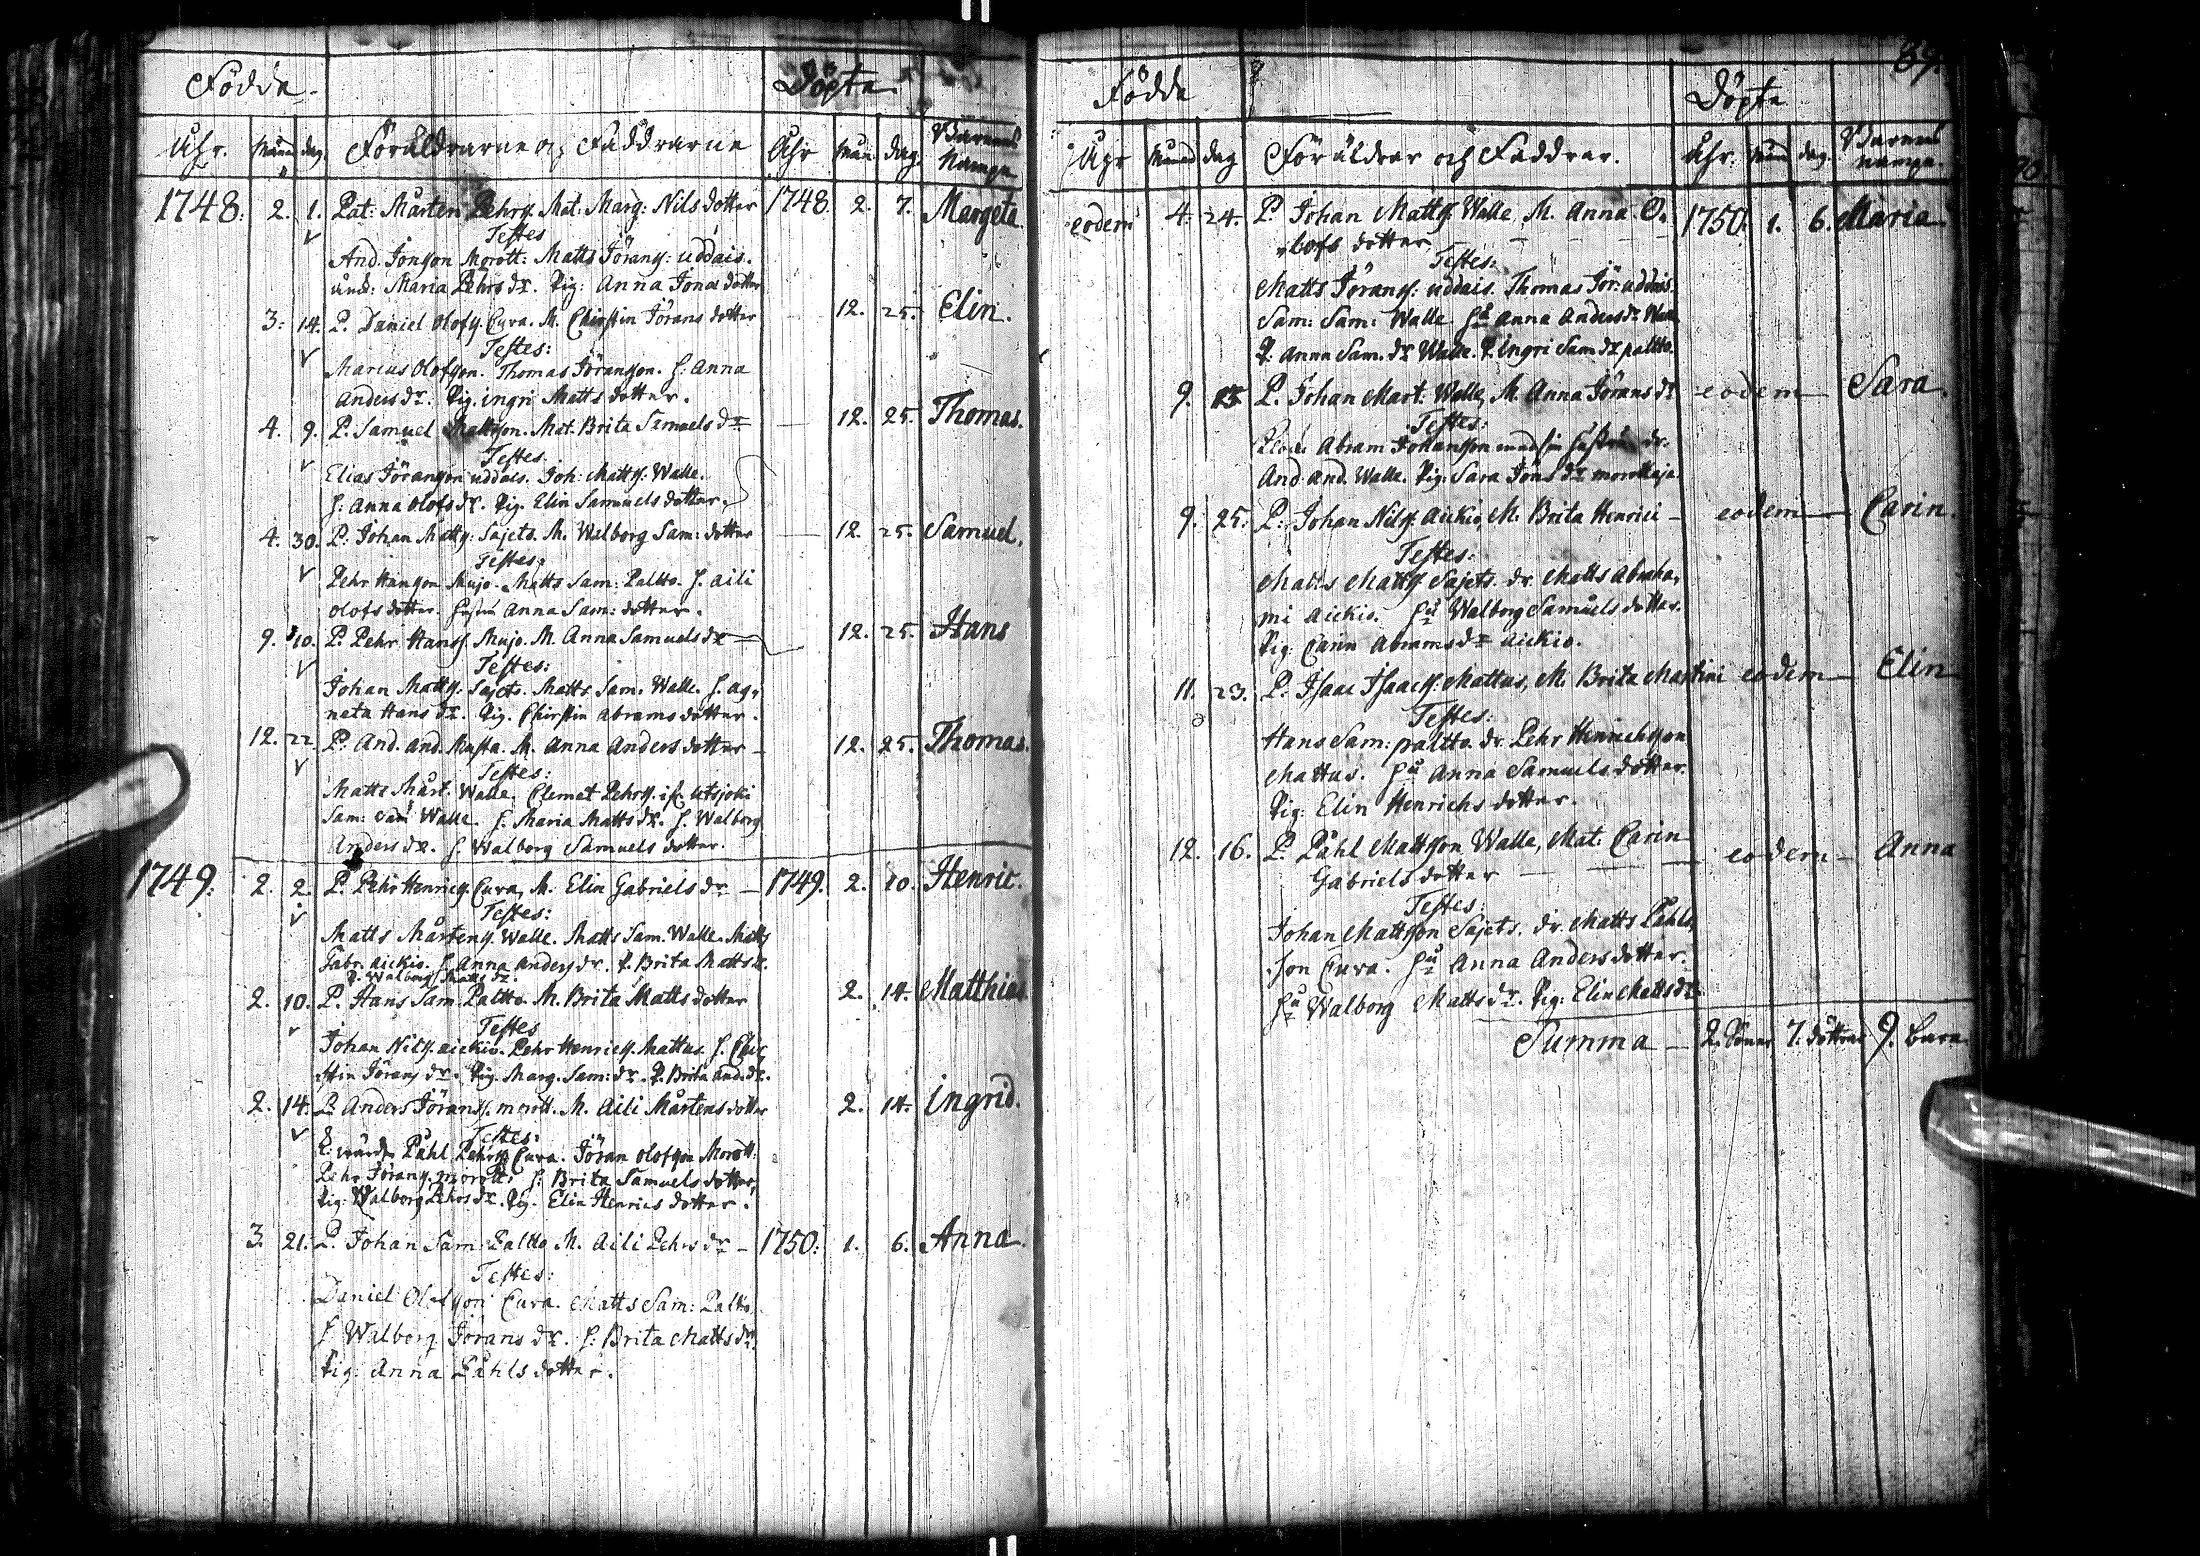 Födde. Döpta.
Åhr. Mån dag. Föräldrarne och Faddrarne Åhr Mån dag. Barnens Nampn
1748. 2. 1. Pat: Mårten Pehrs. Mat: Marg: Nils dotter 1748. 2. 7. Margeta.
Testes
And. Jonson Morott: Matts Jörans: uddais.
Maria Pehrs dr. Pig: Anna Jonæ dotter
3. 14. P. Daniel Olofs. Cura. M. Chirstin Jörans dotter 12. 25. Elin.
Testes:
Marcus Olofson. Thomas Jöranson. H. Anna
Anders dr. Pig. ingri Matts dotter.
4. 9. P. Samuel Mattson. Mat. Brita Samuels dr — 12. 25. Thomas.
Testes.
Elias Jöranson uddais. Joh: Matts: Walle.
H: Anna Olofs dr. Pig. Elin Samuels dotter.
4. 30. P: Johan Matts: Sajets. M. Walborg Sam: dotter — 12. 25. Samuel.
Testes:
Pehr Hanson Mujo. Matts Sam: Paltto. H. Aili
Olofs dotter. Hustru Anna Sam: dotter.
9. 10. P. Pehr Hanss. Mujo. M. Anna Samuels dr 12. 25. Hans
Testes:
Johan Matts. Sajets. Matts Sam. Walle. H. ag,
neta Hans dr. Pig. Chirstin Abrams dotter.
12. 22 P. And. And. Musta. M. Anna Anders dotter — 12. 25. Thomas.
Testes:
Matts Mårt. Walle. Clemet Pehrs. ifr. Utsjoki
Sam: Sam Walle. H. Maria Matts dr. H. Walborg
Anders dr. H. Walborg Samuels dotter.
1749. 2. 2. P. Pehr Henrics. Cura, M. Elin Gabriels dr — 1749. 2. 10. Henric.
Testes:
Matts Mårtens. Walle. Matts Sam. Walle. Matts
Gabr. Aickio. H. Anna Anders dr. P. Brita Matts dr.
P. Walborg Matts dr.
2. 10. P. Hans Sam. Paltto. M. Brita Matts dotter 2. 14. Matthias
Testes
Johan Nils. Aickio. Pehr Henrics. Mattus. H. Chir,
stin Jörans dr. Pig. Marg. Sam: dr. P. Brita And. dr.
2. 14. P. Anders Jörans. morott. M. Aili Mårtens dotter 2. 14. ingrid.
Testes:
Påhl Pehrs Cura. Jöran Olofson Morott:
Pehr Jörans. morott: H: Brita Samuels dotter,
Pig: Walborg Pehrs dr. Pig. Elin Henrics dotter.
3. 21. P. Johan Sam: Paltto M. Aili Pehrs dr — 1750. 1. 6. Anna.
Testes:
Daniel Olofson Cura. Matts Sam: Paltto.
H Walborg Jörans dr. H: Brita Matts dr.
Pig. Anna Påhls dotter.
89.
Födde Döpta
Åhr Månad dag Föräldrar och Faddrar. Åhr. Mån dag. Barnens nampn.
eodem 4. 24. P. Johan Matts. Walle, M. Anna O, 1750. 1. 6. Maria
lofs dotter
Testes:
Matts Jörans: uddais. Thomas Jör: uddais.
Sam: Sam: Walle. Hu Anna Anders dr Walle
P. Anna Sam. dr Walle. P. ingri Sam dr paltto.
9. 15 P. Johan Mårt. Walle, M. Anna Jörans dr eodem — Sara.
Testes:
Abram Johansson med sin hustru
And. And. Walle. Pig: Sara Jöns dr morottaja.
9. 25. P. Johan Nils. Aickio, M. Brita Henrici — eodem — Carin.
Testes:
Matts Matts Sajets. dr. Matts Abraha,
mi Aickio. Hu Walborg Samuels dotter.
Pig: Carin Abrams dr Aickio.
11. 23. P. Isaac Isaacs. Mattus, M. Brita Martini eodem — Elin
Testes:
Hans Sam: paltto. dr. Pehr Henrichsson
Mattus. Hu Anna Samuels dotter.
Pig: Elin Henrichs dotter.
12. 16. P. Påhl Mattson Walle, Mat. Carin eodem — Anna
Gabriels dotter
Testes:
Johan Mattson Sajets. dr. Matts Påhls,
son Cura. Hu Anna Anders dotter.
Hu Walborg Matts dr. Pig: Elin Matts dr.
Summa — 2. Söner 7. döttrar 9. barn.